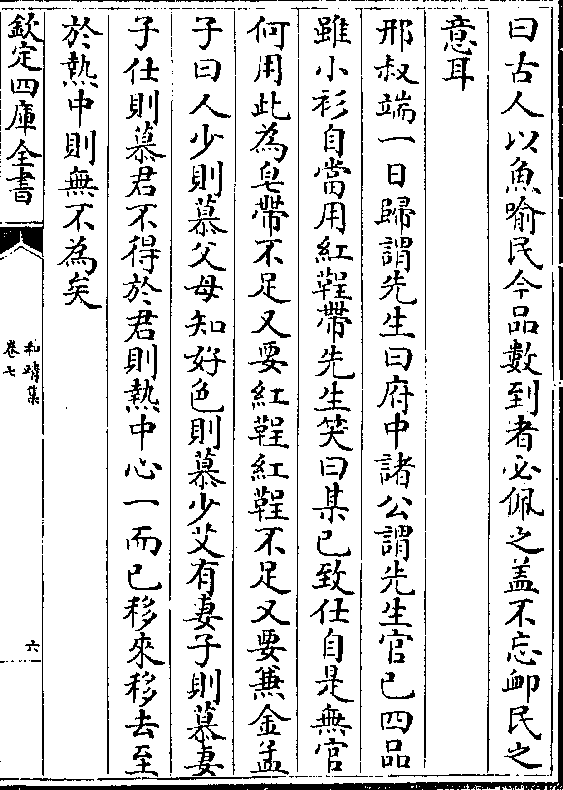 曰古人以魚喻民今品數到者必佩之盖不忘䘏民之
意耳
邢叔端一日歸謂先生曰府中諸公謂先生官已四品
雖小衫自當用紅鞓帶先生笑曰某已致仕自是無官
何用此為皂帶不足又要紅鞓紅鞓不足又要兼金孟
子曰人少則慕父母知好色則慕少艾有妻子則慕妻
子仕則慕君不得於君則熱中心一而已移來移去至
於熱中則無不為矣
欽定四庫全書
和靖集
卷七
六